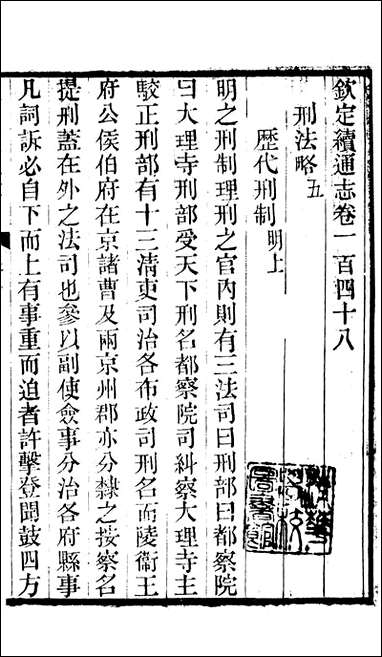 欽定續通志卷一百四十八
刑法略五
歷代刑制明上
明之刑制理刑之官內則有三法司曰刑部曰都察院
曰大理寺刑部受天下刑名都察院司糾察大理寺主
駮正刑部有十三清吏司治各布政司刑名而陵衞王
府公侯伯府在京諸曹及兩京州郡亦分隸之按察名
提刑蓋在外之法司也參以副使僉事分治各府縣事
凡詞訴必自下而上有事重而迫者許擊登聞鼓四方